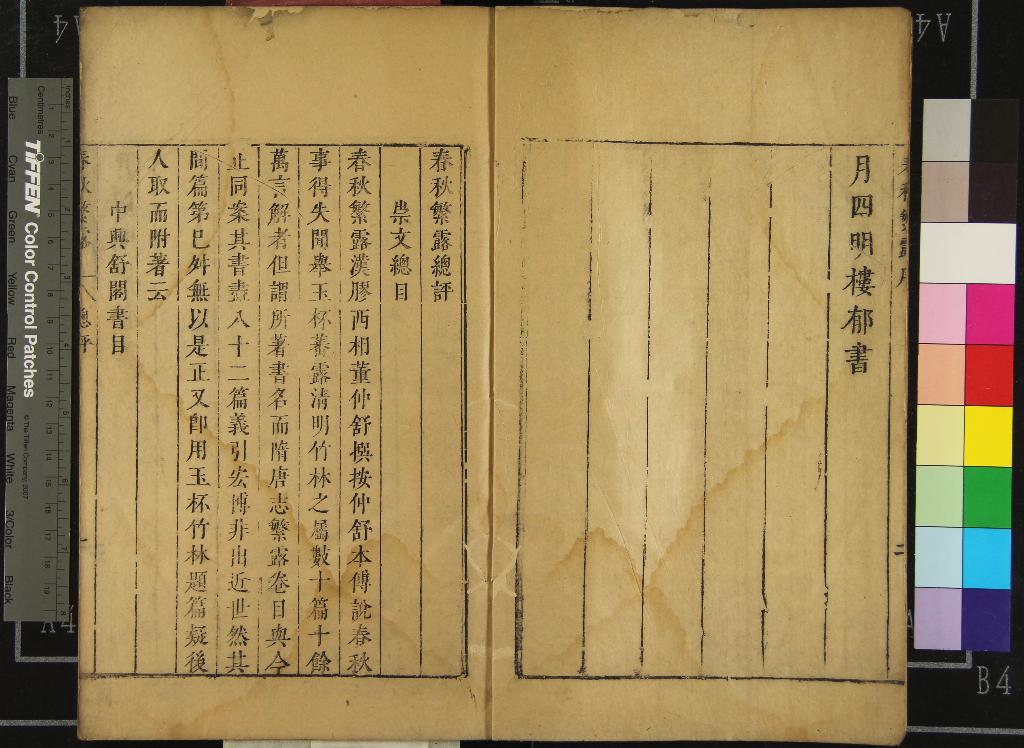 月四明樓郁書
春秋繁露總評
崇文總目
春秋繁露漢膠西相董仲舒撰按仲舒本傳說春秋
事得失聞舉玉杯蕃露清明竹林之屬數十篇十餘
萬言解者但謂所著書名而隋唐志繁露卷目與今
止同案其書盡八十二篇義引宏博非出近世然其
間篇第已舛無以是正又卽用玉杯竹林題篇疑後
人取而附著云
中興舒閣書目
TIFFEN Color Control Patches
© The Tiffen Company, 2007
Centimetres
Inches
Blue
Cyan
Green
Yellow
Red
Magenta
White
3/Color
Black
A4
A4
B4